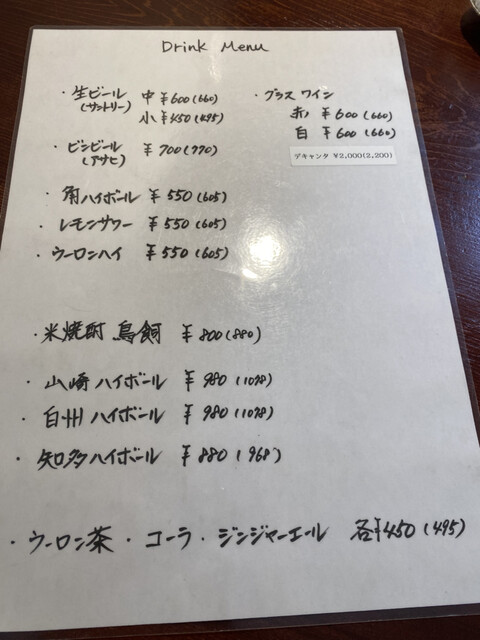 Drink Menu
・生ビール 中 ¥600(660)
(サントリー) 小 ¥450(495)
・ビンビール ¥700(770)
(アサヒ)
・角ハイボール ¥550(605)
・レモンサワー ¥550(605)
・ウーロンハイ ¥550(605)
・グラスワイン
赤 ¥600(660)
白 ¥600(660)
デキャンタ ¥2,000(2,200)
・米焼酎 鳥飼 ¥800(880)
・山崎ハイボール ¥980(1078)
・白州ハイボール ¥980(1078)
・知多ハイボール ¥880(968)
・ウーロン茶・コーラ・ジンジャーエール 各¥450(495)